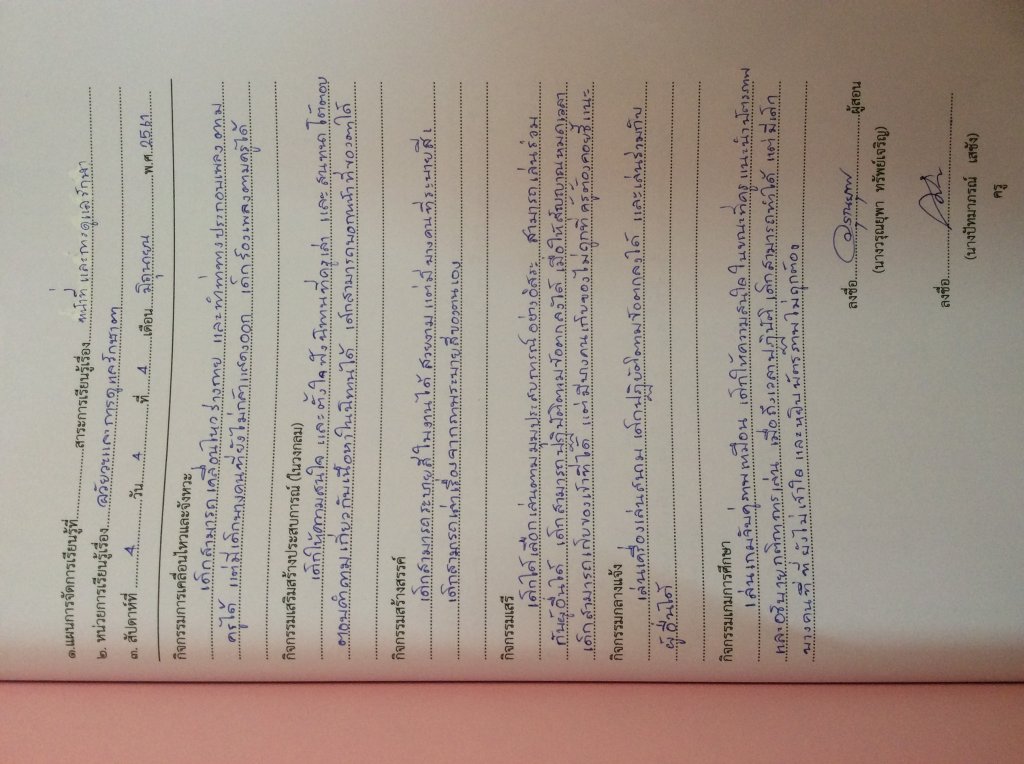 ๑.แผนการจัดการเรียนรู้ที่..........สาระการเรียนรู้เรื่อง....หน้าที่ และการดูแลรักษา
๒. หน่วยการเรียนรู้เรื่อง....อวัยวะและการดูแลรักษาตา
๓. สัปดาห์ที่....4....วัน....4....ที่....4....เดือน....มิถุนายน....พ.ศ.2561
กิจกรรมการเคลื่อนไหวและจังหวะ
เด็กสามารถเคลื่อนไหวร่างกาย และทำท่าทางประกอบเพลงตาม
ครูได้ แต่มีเด็กบางคนที่ยังไม่กล้าแสดงออก เด็กร้องเพลงตามครูได้
กิจกรรมเสริมสร้างประสบการณ์ (ในวงกลม)
เด็กให้ความสนใจ และตั้งใจฟังนิทานที่ครูเล่า และสนทนาโต้ตอบ
ตอบคำถามเกี่ยวกับเนื้อหาในนิทานได้ เด็กสามารถบอกหน้าที่ของตาได้
กิจกรรมสร้างสรรค์
เด็กสามารถระบายสีใบงานได้สวยงาม แต่มีบางคนที่ระบายสี
เด็กสามารถเล่าเรื่องจากภาพระบายสีของตนเอง
กิจกรรมเสรี
เด็กได้เลือกเล่นตามมุมประสบการณ์อย่างอิสระ สามารถเล่นร่วม
กับผู้อื่นได้ เด็กสามารถปฏิบัติตามข้อตกลงได้ เมื่อให้สัญญาณหมดเวลา
เด็กสามารถเก็บของเข้าที่ได้ แต่มีบางคนเก็บของไม่ถูกที่ ครูต้องคอยชี้แนะ
กิจกรรมกลางแจ้ง
เล่นเครื่องเล่นสนาม เด็กปฏิบัติตามข้อตกลงได้ และเล่นร่วมกับ
ผู้อื่นได้
กิจกรรมเกมการศึกษา
เล่นเกมจับคู่ภาพเหมือน เด็กให้ความสนใจในขณะที่ครูแนะนำบัตรภาพ
และอธิบายกติกาการเล่น เมื่อถึงเวลาปฏิบัติเด็กสามารถทำได้ แต่มีเด็ก
บางคนที่ยังไม่เข้าใจ และหยิบบัตรภาพไม่ถูกต้อง
ลงชื่อ....วรุณยุพา....ผู้สอน
(นางวรุณยุพา ทรัพย์เจริญ)
ลงชื่อ..........
(นางปัทมาภรณ์ เสชัง)
ครู